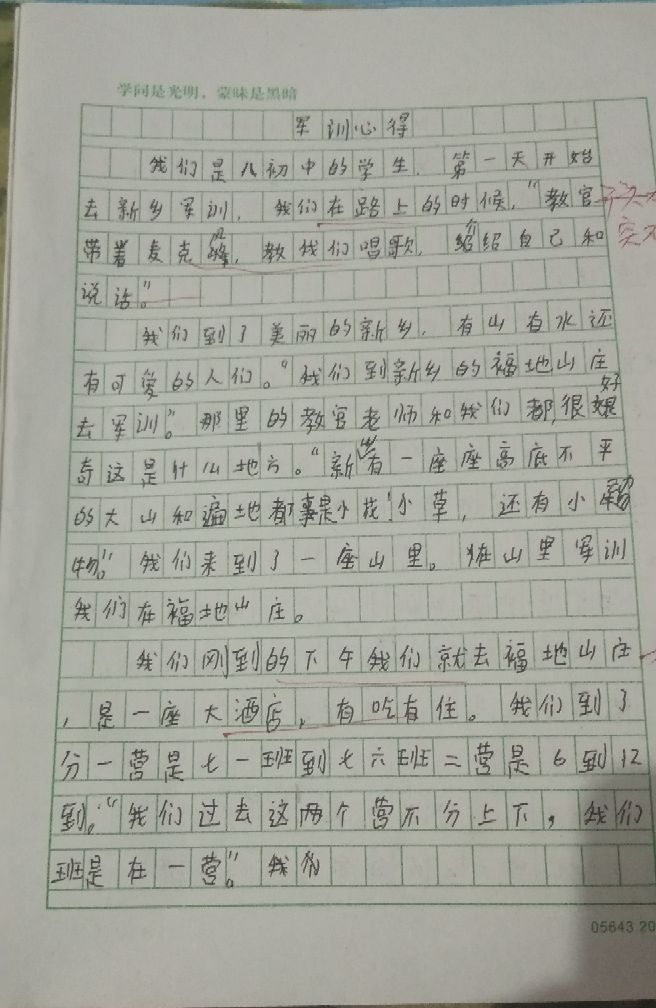 学问是光明，蒙昧是黑暗
军训心得
我们是八初中的学生．第一天开始
去新乡军训，我们在路上的时候，“教官
带着麦克，教我们唱歌，绍绍自己和
说话”。
我们到了美丽的新乡，有山有水还
有可爱的人们。“我们到新乡的福地山庄
去军训”。那里的教官老师和我们都，很好
奇这是什么地方。“新有一座座高底不平
的大山和遍地都是小花！小草，还有小
物”。我们来到了一座山里。在山里军训
我们在福地山庄。
我们刚到的下午我们就去福地山庄
，是一座大酒店，有吃有住。我们到了
分一营是七一班到七六班二营是6到12
到。“我们过去这两个营不分上下，我们
班是在一营”。我
05643 20